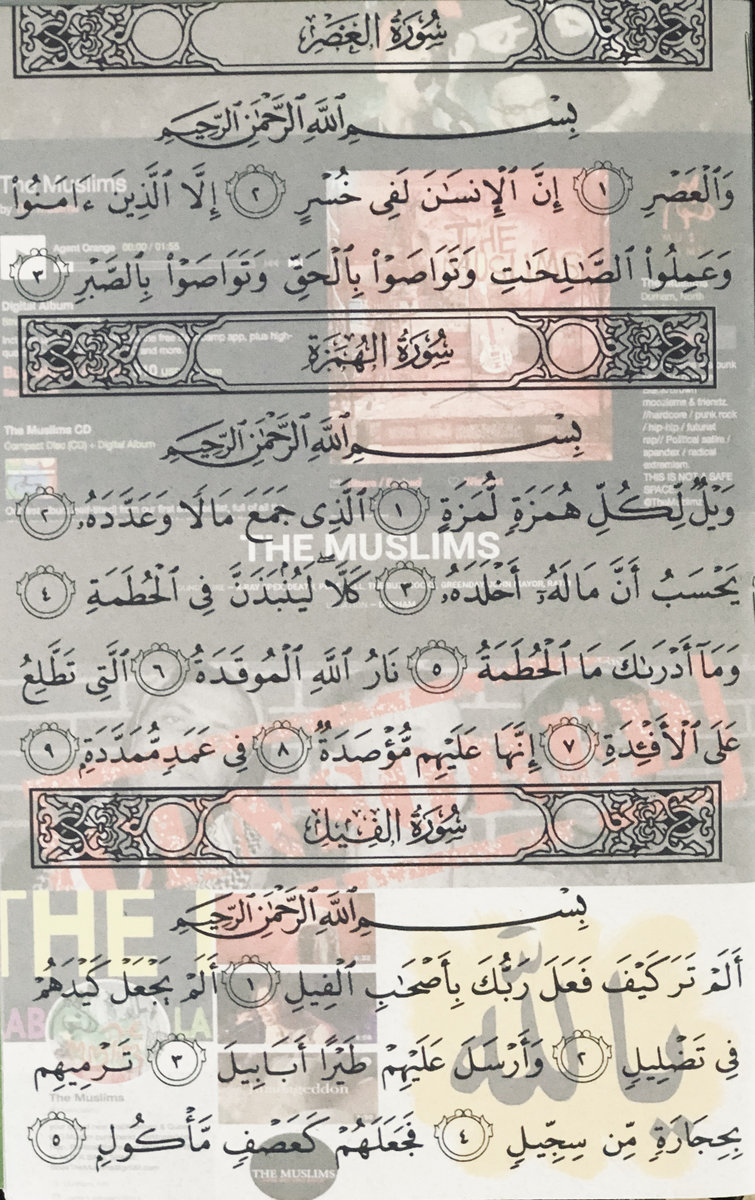 سُورَةُ العَصْرِ
بِسْمِ ٱللَّهِ ٱلرَّحْمَٰنِ ٱلرَّحِيمِ
وَٱلْعَصْرِ ١ إِنَّ ٱلْإِنسَٰنَ لَفِى خُسْرٍ ٢ إِلَّا ٱلَّذِينَ ءَامَنُوا۟
وَعَمِلُوا۟ ٱلصَّٰلِحَٰتِ وَتَوَاصَوْا۟ بِٱلْحَقِّ وَتَوَاصَوْا۟ بِٱلصَّبْرِ ٣
سُورَةُ الهُمَزَةِ
بِسْمِ ٱللَّهِ ٱلرَّحْمَٰنِ ٱلرَّحِيمِ
وَيْلٌ لِّكُلِّ هُمَزَةٍ لُّمَزَةٍ ١ ٱلَّذِى جَمَعَ مَالًا وَعَدَّدَهُۥ ٢
يَحْسَبُ أَنَّ مَالَهُۥٓ أَخْلَدَهُۥ ٣ كَلَّا ۖ لَيُنۢبَذَنَّ فِى ٱلْحُطَمَةِ ٤
وَمَآ أَدْرَىٰكَ مَا ٱلْحُطَمَةُ ٥ نَارُ ٱللَّهِ ٱلْمُوقَدَةُ ٦ ٱلَّتِى تَطَّلِعُ
عَلَى ٱلْأَفْـِٔدَةِ ٧ إِنَّهَا عَلَيْهِم مُّؤْصَدَةٌ ٨ فِى عَمَدٍ مُّمَدَّدَةٍۭ ٩
سُورَةُ الفِيلِ
بِسْمِ ٱللَّهِ ٱلرَّحْمَٰنِ ٱلرَّحِيمِ
أَلَمْ تَرَ كَيْفَ فَعَلَ رَبُّكَ بِأَصْحَٰبِ ٱلْفِيلِ ١ أَلَمْ يَجْعَلْ كَيْدَهُمْ
فِى تَضْلِيلٍ ٢ وَأَرْسَلَ عَلَيْهِمْ طَيْرًا أَبَابِيلَ ٣ تَرْمِيهِم
بِحِجَارَةٍ مِّن سِجِّيلٍ ٤ فَجَعَلَهُمْ كَعَصْفٍ مَّأْكُولٍۭ ٥
The Muslims
Agent Orange 00:00 / 01:55
Digital Album
The Muslims CD
Compact Disc (CD) + Digital Album
THE MUSLIMS
Durham, North
//hardcore / punk rock
/ hip-hip / futurist
rap// Political satire /
/ radical
extremism.
THIS IS NOT A SAFE
SPACE
THE MUSLIMS
THE
يا الله
The Muslims
THE MUSLIMS